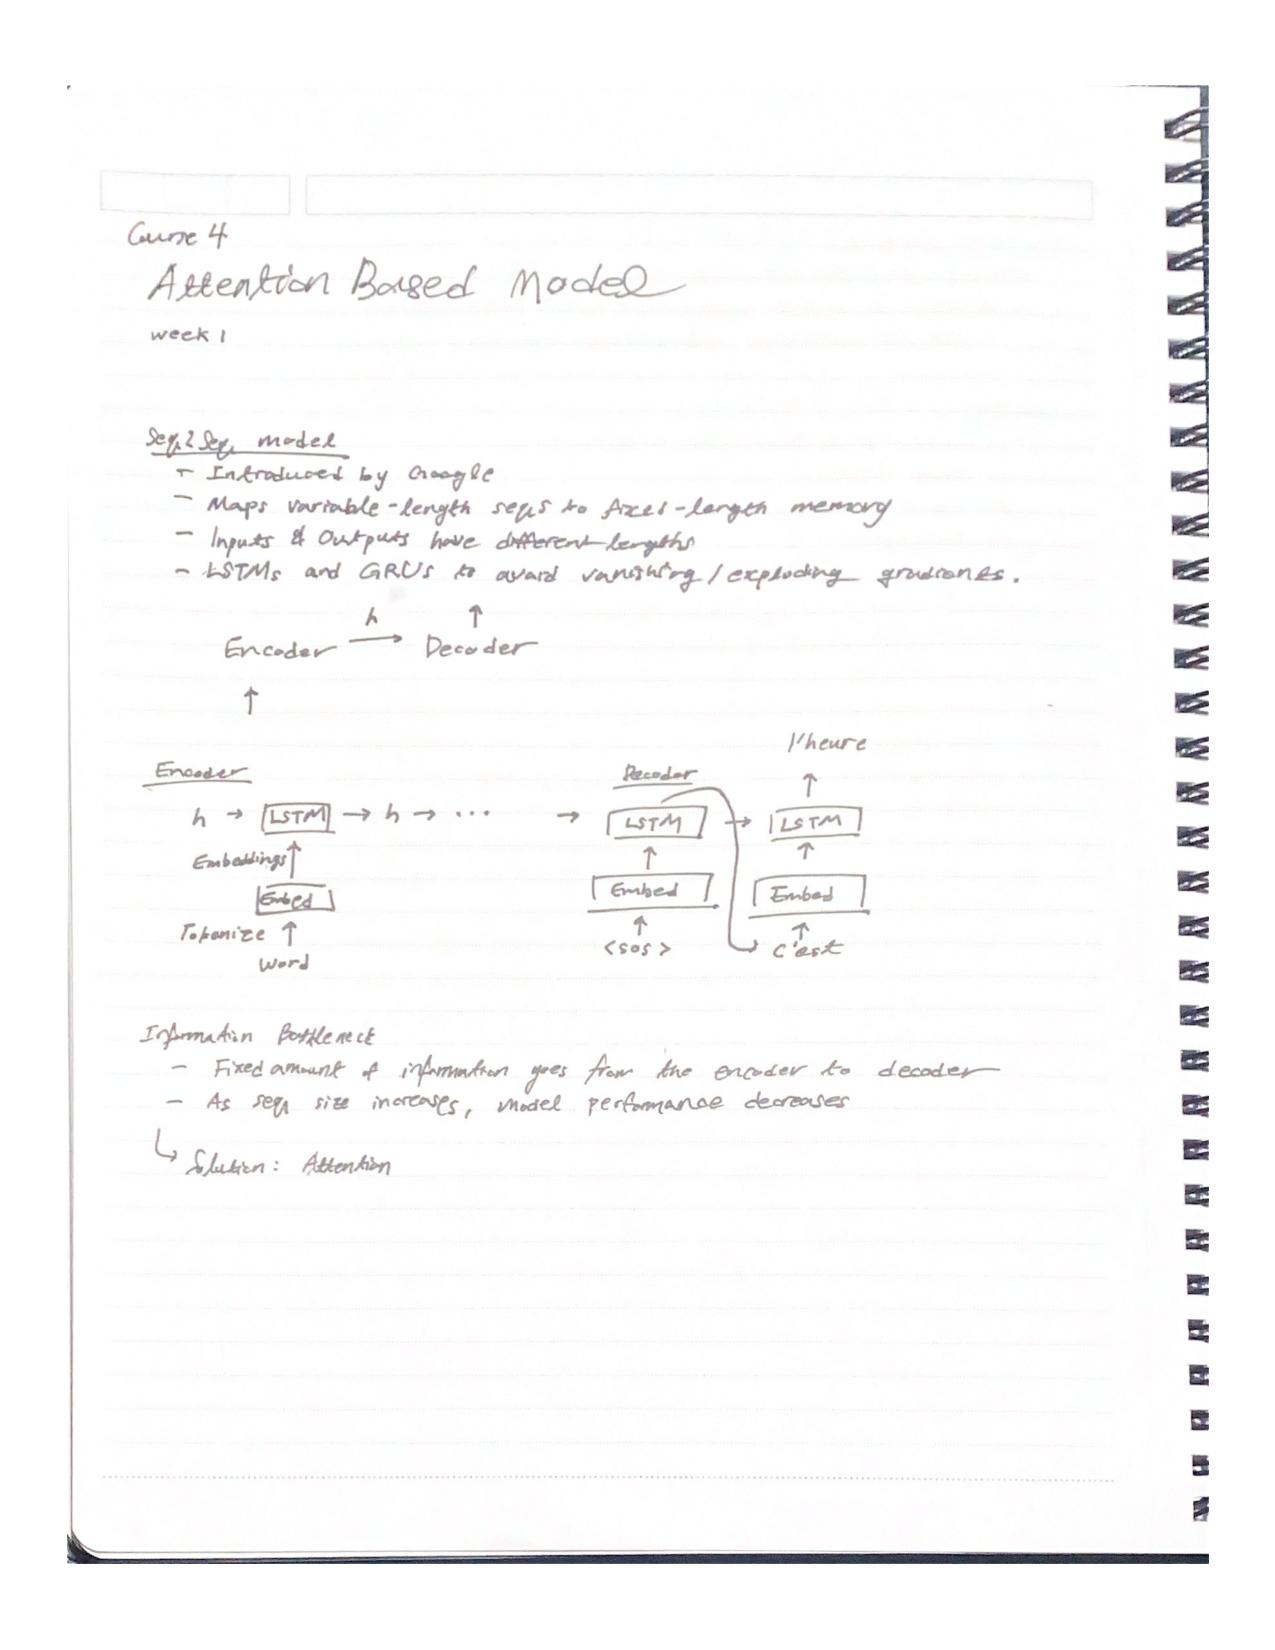 Course 4
Attention Based Model
week 1
Seq2Seq model
- Introduced by Google
- Maps variable-length seqs to fixed-length memory
- Inputs & Outputs have different lengths
- LSTMs and GRUs to avoid vanishing/exploding gradients.
h ↑
Encoder → Decoder
↑
l'heure
Encoder Decoder ↑
h → LSTM → h → ... → LSTM → LSTM
Embeddings ↑ ↑ ↑
Embed Embed Embed
Tokenize ↑ ↑ ↑
word <sos> c'est
Information Bottleneck
- Fixed amount of information goes from the encoder to decoder
- As seq size increases, model performance decreases
↳ Solution: Attention